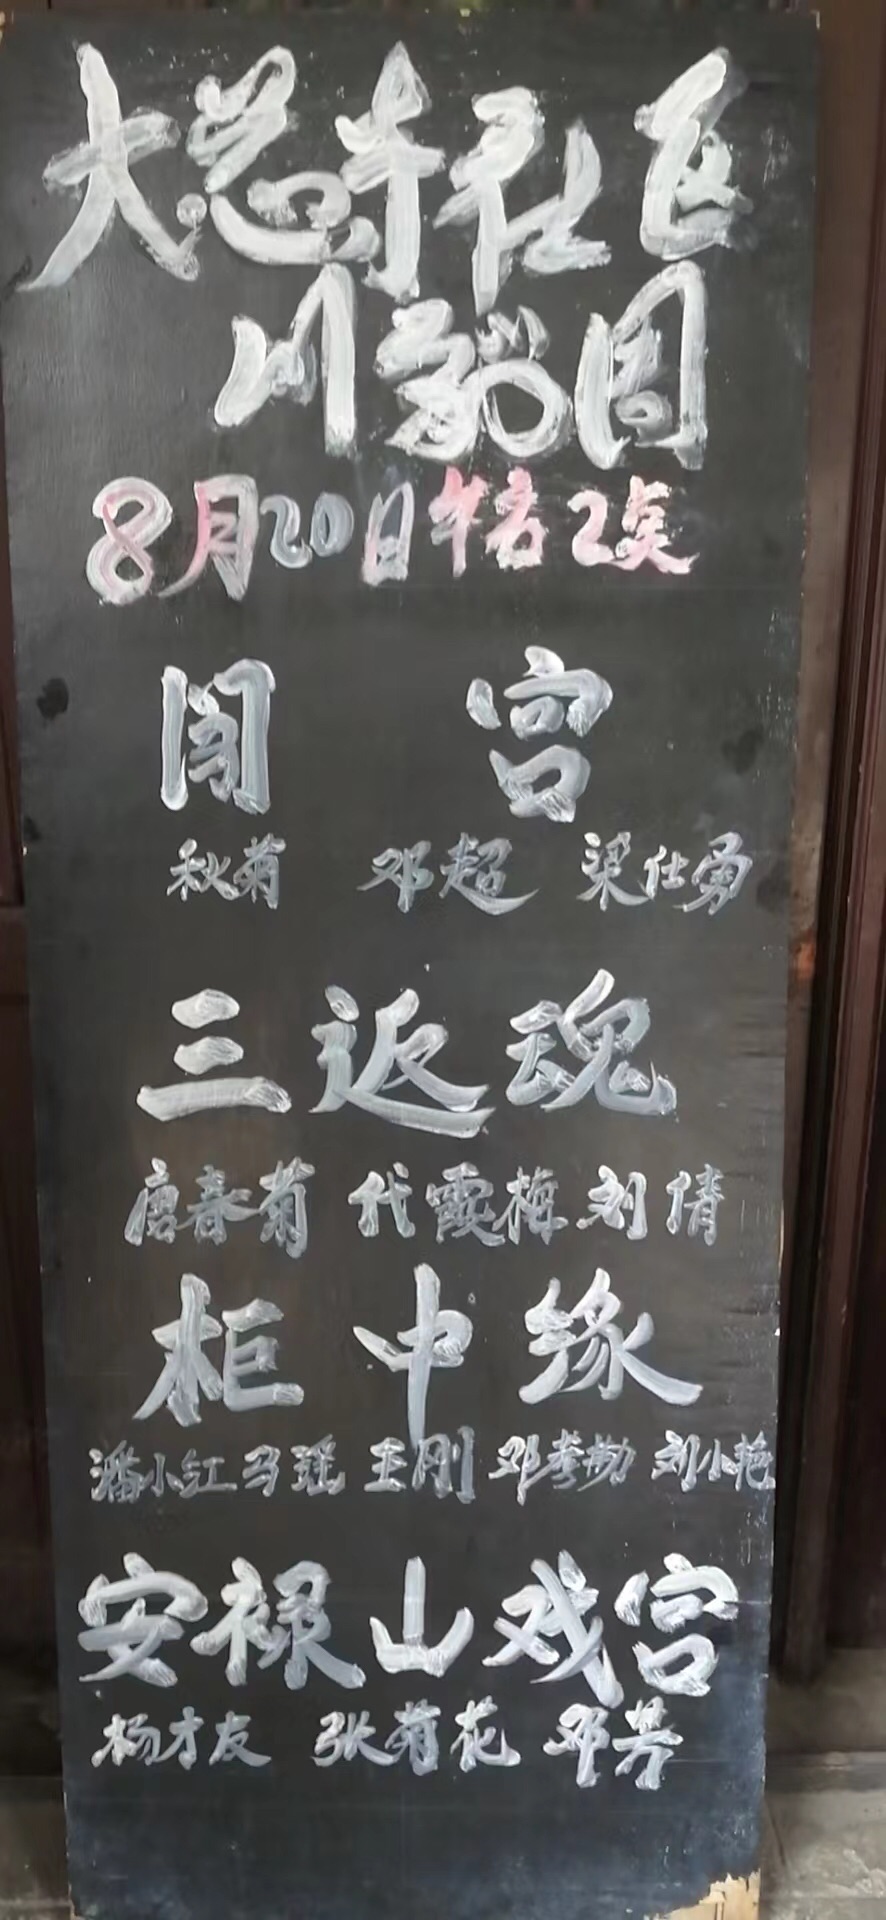 大慈寺社区
川剧团
8月20日午后2点
闯宫
秋菊 邓超 梁仕勇
三返魂
唐春菊 代霞梅 刘倩
柜中缘
潘小红 马瑶 王刚 邓孝勤 刘小艳
安禄山戏宫
杨才友 张菊花 邓芳